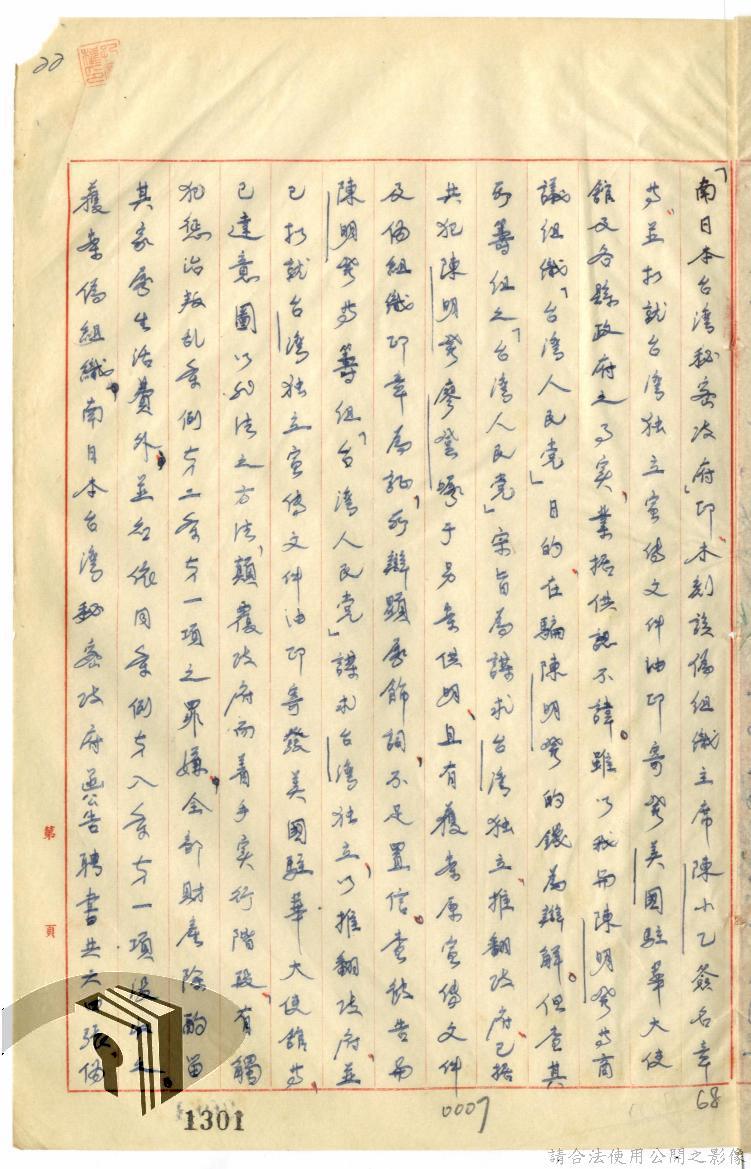 「南日本台湾秘密政府」印木刻該偽組織主席陳小乙簽名章
等並打就台湾独立宣傳文件油印寄發美國駐華大使
館及各縣政府之事实業据供認不諱雖以我与陳明發等商
議組織「台湾人民党」目的在騙陳明發的錢為辯解但查其
所籌組之「台湾人民党」宗旨為謀求台湾独立推翻政府已据
共犯陳明發廖登 于另案供明且有獲案原宣傳文件
及偽組織印章為証所辯顯系飾詞不足置信查被告与
陳明發等籌組「台湾人民党」謀求台湾独立以推翻政府並
已打就台湾独立宣傳文件油印寄發美國駐華大使館等
已達意圖以非法之方法顛覆政府而着手实行階段有觸
犯懲治叛乱条例第二条第一項之罪嫌全部財產除酌留
其家屬生活費外並紅依同条例第八条第一項沒收之
獲案偽組織南日本台湾秘密政府 公告聘書共六 張偽
第 頁
22
68
0007
1301
請合法使用公開之影像